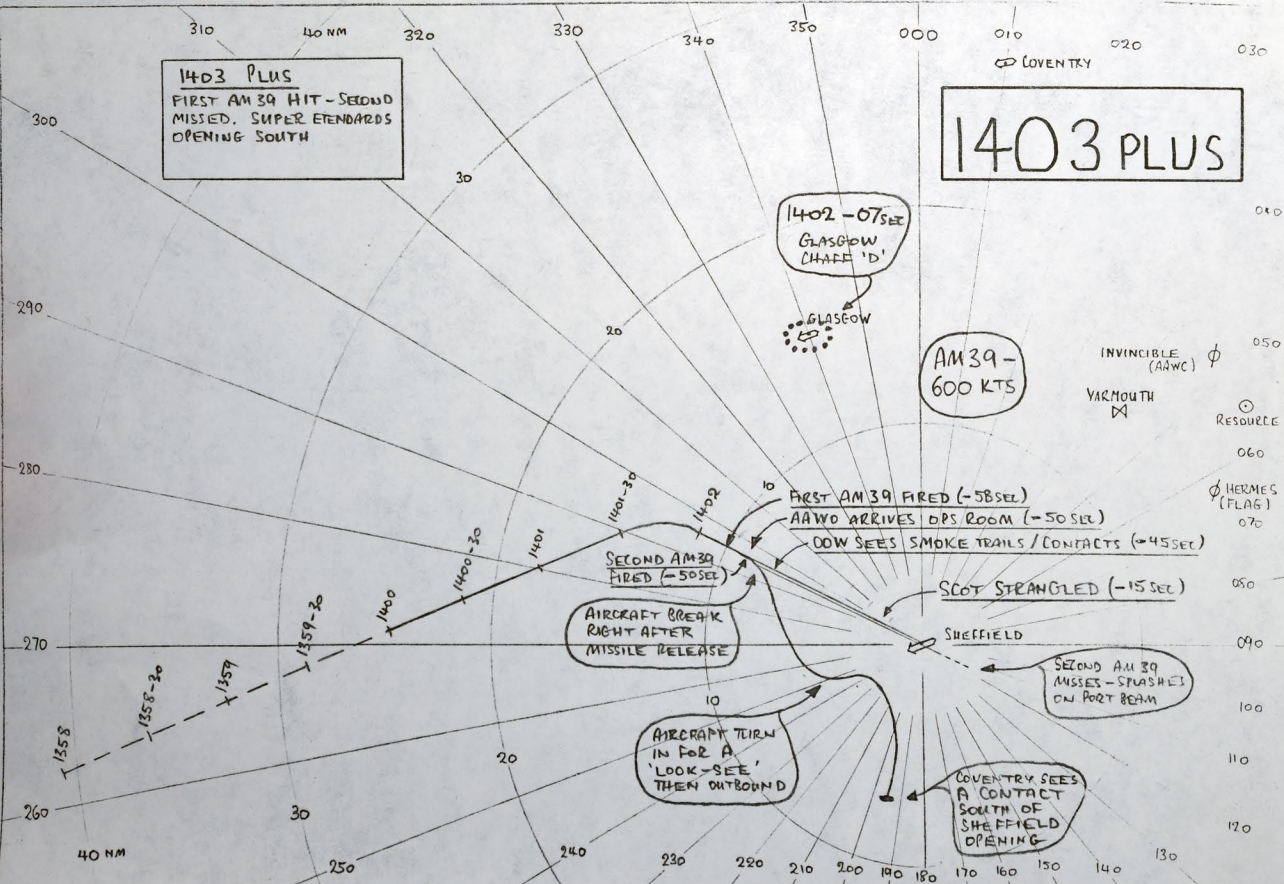 310
40 NM
320
330
340
350
000
010
020
030
COVENTRY
1403 PLUS
FIRST AM 39 HIT - SECOND
MISSED. SUPER ETENDARDS
OPENING SOUTH
1403 PLUS
300
30
040
1402 - 07SEC
GLASGOW
CHAFF 'D'
290
GLASGOW
20
AM39 -
600 KTS
INVINCIBLE
(AAWC)
050
YARMOUTH
RESOURCE
060
280
HERMES
(FLAG)
070
1401-30
1402
10
FIRST AM 39 FIRED (-58SEC)
AAWO ARRIVES OPS ROOM (-50SEC)
OOW SEES SMOKE TRAILS / CONTACTS (-45SEC)
1401
1400-30
SECOND AM39
FIRED (-50SEC)
SCOT STRANGLED (-15SEC)
080
1400
1359-30
AIRCRAFT BREAK
RIGHT AFTER
MISSILE RELEASE
SHEFFIELD
270
090
1359
1358-30
1358
SECOND AM 39
MISSES - SPLASHES
ON PORT BEAM
10
100
AIRCRAFT TURN
IN FOR A
'LOOK-SEE'
THEN OUTBOUND
20
110
COVENTRY SEES
A CONTACT
SOUTH OF
SHEFFIELD
OPENING
260
30
120
40 NM
250
240
230
220
210
200
190
180
170
160
150
140
130